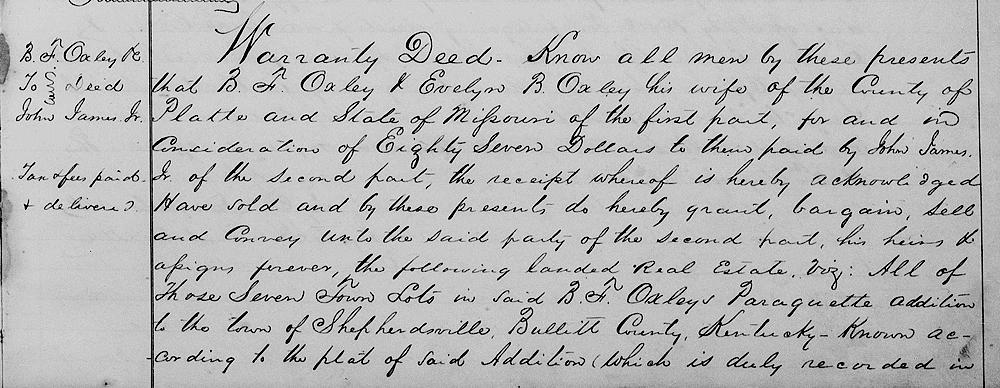 B. F. Oxley &c.
To Deed
John James Jr.
Tax & fees paid
& delivered.
Warranty Deed - Know all men by these presents
that B. F. Oxley & Evelyn B. Oxley his wife of the County of
Platte and State of Missouri of the first part, for and in
Consideration of Eighty Seven Dollars to them paid by John James.
Jr. of the second part, the receipt whereof is hereby acknowlidged
Have sold and by these presents do hereby grant, bargain, sell
and Convey unto the said party of the second part, his heirs &
assigns forever, the following landed Real Estate, Viz: All of
those Seven Town Lots in said B. F. Oxleys Paraquette addition
to the town of Shepherdsville, Bullitt County, Kentucky - Known ac-
cording to the plat of said Addition (which is duly recorded in